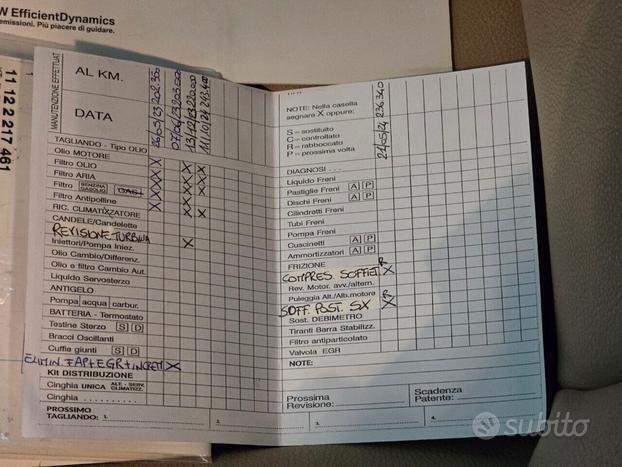 W EfficientDynamics
emissioni. Più piacere di guidare.
11 12 2 217 461
MANUTENZIONE EFFETTUAT.
AL KM.
DATA
26/05/23 202.300
07/06/23 203.000
13/12/23 220.000
11/10/24 243.400
TAGLIANDO - Tipo OLIO
Olio MOTORE
Filtro OLIO
Filtro ARIA
Filtro BENZINA GASOLIO GAS
Filtro Antipolline
RIC. CLIMATIZZATORE
CANDELE/Candelette
REVISIONE TURBINA
Iniettori/Pompa Iniez.
Olio Cambio/Differenz.
Olio e filtro Cambio Aut.
Liquido Servosterzo
ANTIGELO
Pompa acqua carbur.
BATTERIA - Termostato
Testine Sterzo S D
Bracci Oscillanti
Cuffie giunti S D
ELIMIN. FAP+EGR+
KIT DISTRIBUZIONE
Cinghia UNICA ALT. - SERV. CLIMATIZZ.
Cinghia . . . . . . . . . .
PROSSIMO
TAGLIANDO: 1.
2.
NOTE: Nella casella
segnare X oppure:
S = sostituito
C = controllato
R = rabboccato
P = prossima volta
21/05/24 236.340
DIAGNOSI . . .
Liquido Freni
Pastiglie Freni A P
Dischi Freni A P
Cilindretti Freni
Tubi Freni
Pompa Freni
Cuscinetti A P
Ammortizzatori A P
FRIZIONE
COMPRES. SOFFIET. R X
Rev. Motor. avv./altern.
Puleggia Alt./Alb.motore
SOFF. POST. SX R X
Sost. DEBIMETRO
Tiranti Barra Stabilizz.
Filtro antiparticolato
Valvola EGR
NOTE:
Prossima
Revisione:
Scadenza
Patente:
3.
4.
subito